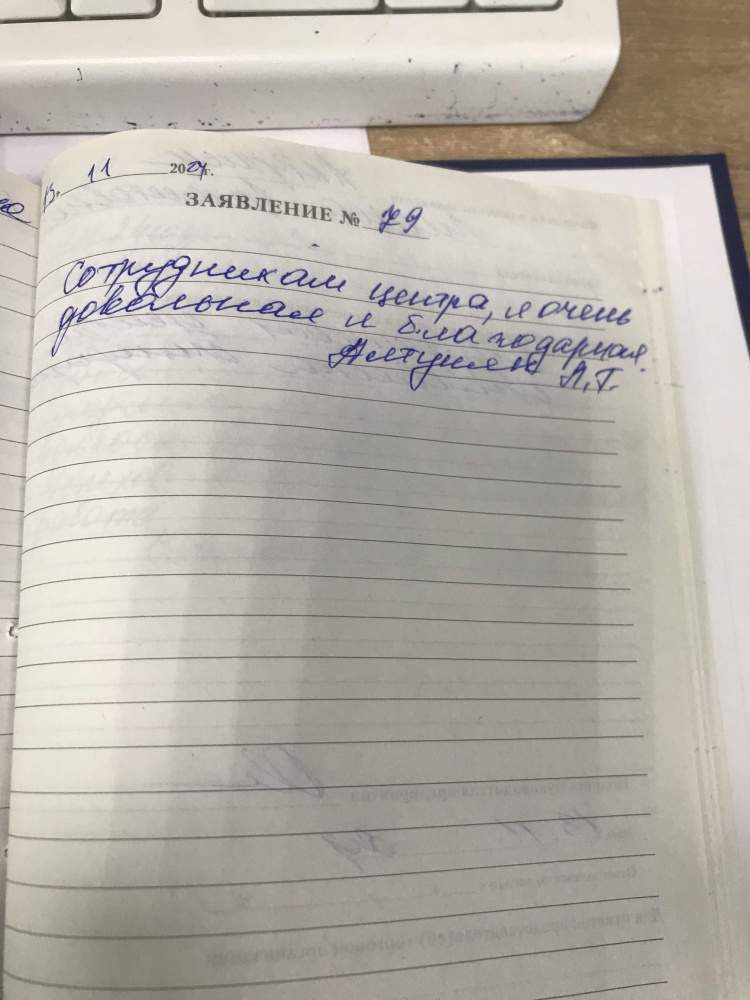 13. 11 2024г.
ЗАЯВЛЕНИЕ № 79
Сотрудникам центра, я очень
довольная и благодарная.
Алтунян Л.Т.